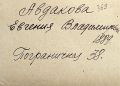 Авдакова
Евгения Владимировн
Пограничная 38.